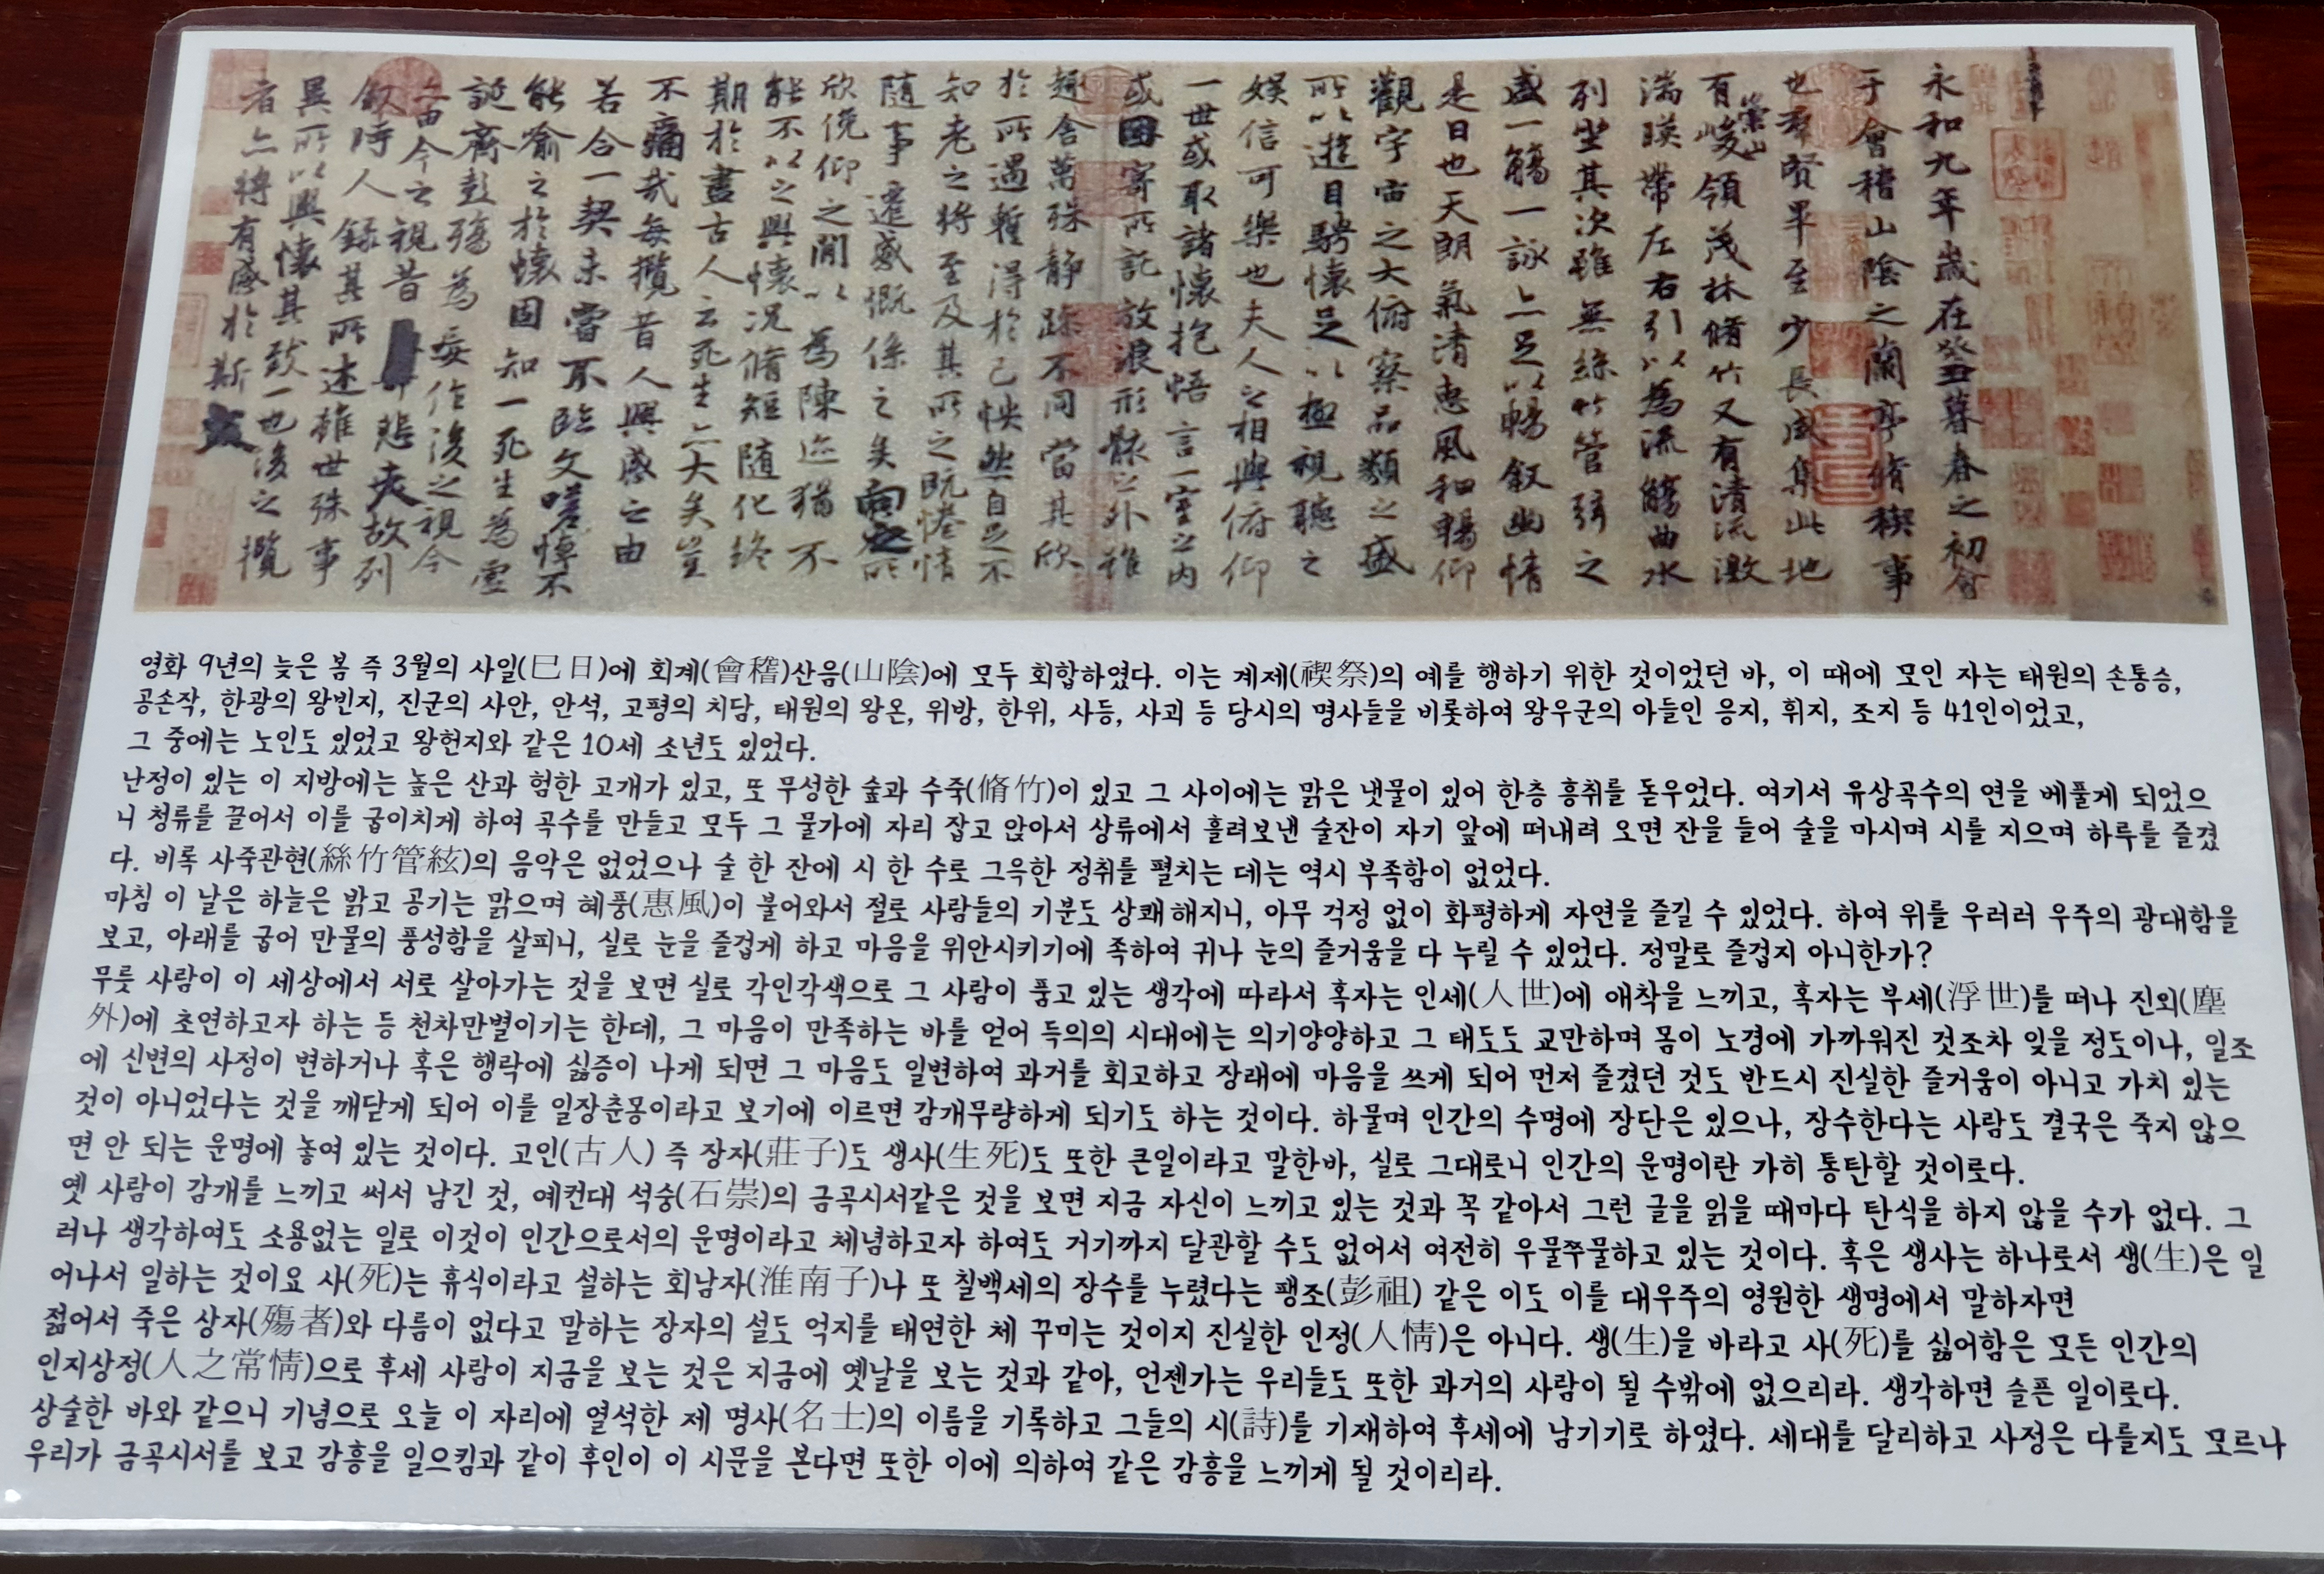 永和九年歲在癸丑暮春之初會
于會稽山陰之蘭亭脩稧事
也羣賢畢至少長咸集此地
有崇山峻領茂林脩竹又有清流激
湍暎帶左右引以為流觴曲水
列坐其次雖無絲竹管弦之
盛一觴一詠亦足以暢叙幽情
是日也天朗氣清惠風和暢仰
觀宇宙之大俯察品類之盛
所以遊目騁懷足以極視聽之
娛信可樂也夫人之相與俯仰
一世或取諸懷抱悟言一室之內
或因寄所託放浪形骸之外雖
趣舍萬殊靜躁不同當其欣
於所遇暫得於己怏然自足不
知老之將至及其所之既惓情
隨事遷感慨係之矣向之所
欣俛仰之閒以為陳迹猶不
能不以之興懷況脩短隨化終
期於盡古人云死生亦大矣豈
不痛哉每攬昔人興感之由
若合一契未嘗不臨文嗟悼不
能喻之於懷固知一死生為虛
誕齊彭殤為妄作後之視今
亦由今之視昔悲夫故列
叙時人錄其所述雖世殊事
異所以興懷其致一也後之攬
者亦將有感於斯文
영화 9년의 늦은 봄 즉 3월의 사일(巳日)에 회계(會稽)산음(山陰)에 모두 회합하였다. 이는 계제(禊祭)의 예를 행하기 위한 것이었던 바, 이 때에 모인 자는 태원의 손통승,
공손작, 한광의 왕빈지, 진군의 사안, 안석, 고평의 치담, 태원의 왕온, 위방, 한위, 사등, 사괴 등 당시의 명사들을 비롯하여 왕우군의 아들인 응지, 휘지, 조지 등 41인이었고,
그 중에는 노인도 있었고 왕헌지와 같은 10세 소년도 있었다.
난정이 있는 이 지방에는 높은 산과 험한 고개가 있고, 또 무성한 숲과 수죽(脩竹)이 있고 그 사이에는 맑은 냇물이 있어 한층 흥취를 돋우었다. 여기서 유상곡수의 연을 베풀게 되었으
니 청류를 끌어서 이를 굽이치게 하여 곡수를 만들고 모두 그 물가에 자리 잡고 앉아서 상류에서 흘려보낸 술잔이 자기 앞에 떠내려 오면 잔을 들어 술을 마시며 시를 지으며 하루를 즐겼
다. 비록 사죽관현(絲竹管絃)의 음악은 없었으나 술 한 잔에 시 한 수로 그윽한 정취를 펼치는 데는 역시 부족함이 없었다.
마침 이 날은 하늘은 밝고 공기는 맑으며 혜풍(惠風)이 불어와서 절로 사람들의 기분도 상쾌해지니, 아무 걱정 없이 화평하게 자연을 즐길 수 있었다. 하여 위를 우러러 우주의 광대함을
보고, 아래를 굽어 만물의 풍성함을 살피니, 실로 눈을 즐겁게 하고 마음을 위안시키기에 족하여 귀나 눈의 즐거움을 다 누릴 수 있었다. 정말로 즐겁지 아니한가?
무릇 사람이 이 세상에서 서로 살아가는 것을 보면 실로 각인각색으로 그 사람이 품고 있는 생각에 따라서 혹자는 인세(人世)에 애착을 느끼고, 혹자는 부세(浮世)를 떠나 진외(塵
外)에 초연하고자 하는 등 천차만별이기는 한데, 그 마음이 만족하는 바를 얻어 득의의 시대에는 의기양양하고 그 태도도 교만하며 몸이 노경에 가까워진 것조차 잊을 정도이나, 일조
에 신변의 사정이 변하거나 혹은 행락에 싫증이 나게 되면 그 마음도 일변하여 과거를 회고하고 장래에 마음을 쓰게 되어 먼저 즐겼던 것도 반드시 진실한 즐거움이 아니고 가치 있는
것이 아니었다는 것을 깨닫게 되어 이를 일장춘몽이라고 보기에 이르면 감개무량하게 되기도 하는 것이다. 하물며 인간의 수명에 장단은 있으나, 장수한다는 사람도 결국은 죽지 않으
면 안 되는 운명에 놓여 있는 것이다. 고인(古人) 즉 장자(莊子)도 생사(生死)도 또한 큰일이라고 말한바, 실로 그대로니 인간의 운명이란 가히 통탄할 것이로다.
옛 사람이 감개를 느끼고 써서 남긴 것, 예컨대 석숭(石崇)의 금곡시서같은 것을 보면 지금 자신이 느끼고 있는 것과 꼭 같아서 그런 글을 읽을 때마다 탄식을 하지 않을 수가 없다. 그
러나 생각하여도 소용없는 일로 이것이 인간으로서의 운명이라고 체념하고자 하여도 거기까지 달관할 수도 없어서 여전히 우물쭈물하고 있는 것이다. 혹은 생사는 하나로서 생(生)은 일
어나서 일하는 것이요 사(死)는 휴식이라고 설하는 회남자(淮南子)나 또 칠백세의 장수를 누렸다는 팽조(彭祖) 같은 이도 이를 대우주의 영원한 생명에서 말하자면
젊어서 죽은 상자(殤者)와 다름이 없다고 말하는 장자의 설도 억지를 태연한 체 꾸미는 것이지 진실한 인정(人情)은 아니다. 생(生)을 바라고 사(死)를 싫어함은 모든 인간의
인지상정(人之常情)으로 후세 사람이 지금을 보는 것은 지금에 옛날을 보는 것과 같아, 언젠가는 우리들도 또한 과거의 사람이 될 수밖에 없으리라. 생각하면 슬픈 일이로다.
상술한 바와 같으니 기념으로 오늘 이 자리에 열석한 제 명사(名士)의 이름을 기록하고 그들의 시(詩)를 기재하여 후세에 남기기로 하였다. 세대를 달리하고 사정은 다를지도 모르나
우리가 금곡시서를 보고 감흥을 일으킴과 같이 후인이 이 시문을 본다면 또한 이에 의하여 같은 감흥을 느끼게 될 것이리라.